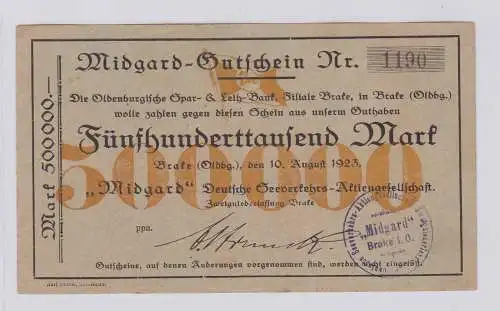 Midgard-Gutschein Nr. 1190
Die Oldenburgische Spar- & Leih-Bank, Filiale Brake, in Brake (Oldbg.)
wolle zahlen gegen diesen Schein aus unserm Guthaben
Fünfhunderttausend Mark
500000
Brake (Oldbg.), den 10. August 1923.
„Midgard" Deutsche Seeverkehrs-Aktiengesellschaft.
Zweigniederlassung Brake
ppa.
Gutscheine, auf denen Änderungen vorgenommen sind, werden nicht eingelöst.
Mark 500000.—
„Midgard"
Brake i. O.